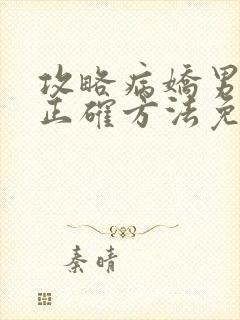 攻略病嬌男
正確方法免
秦晴